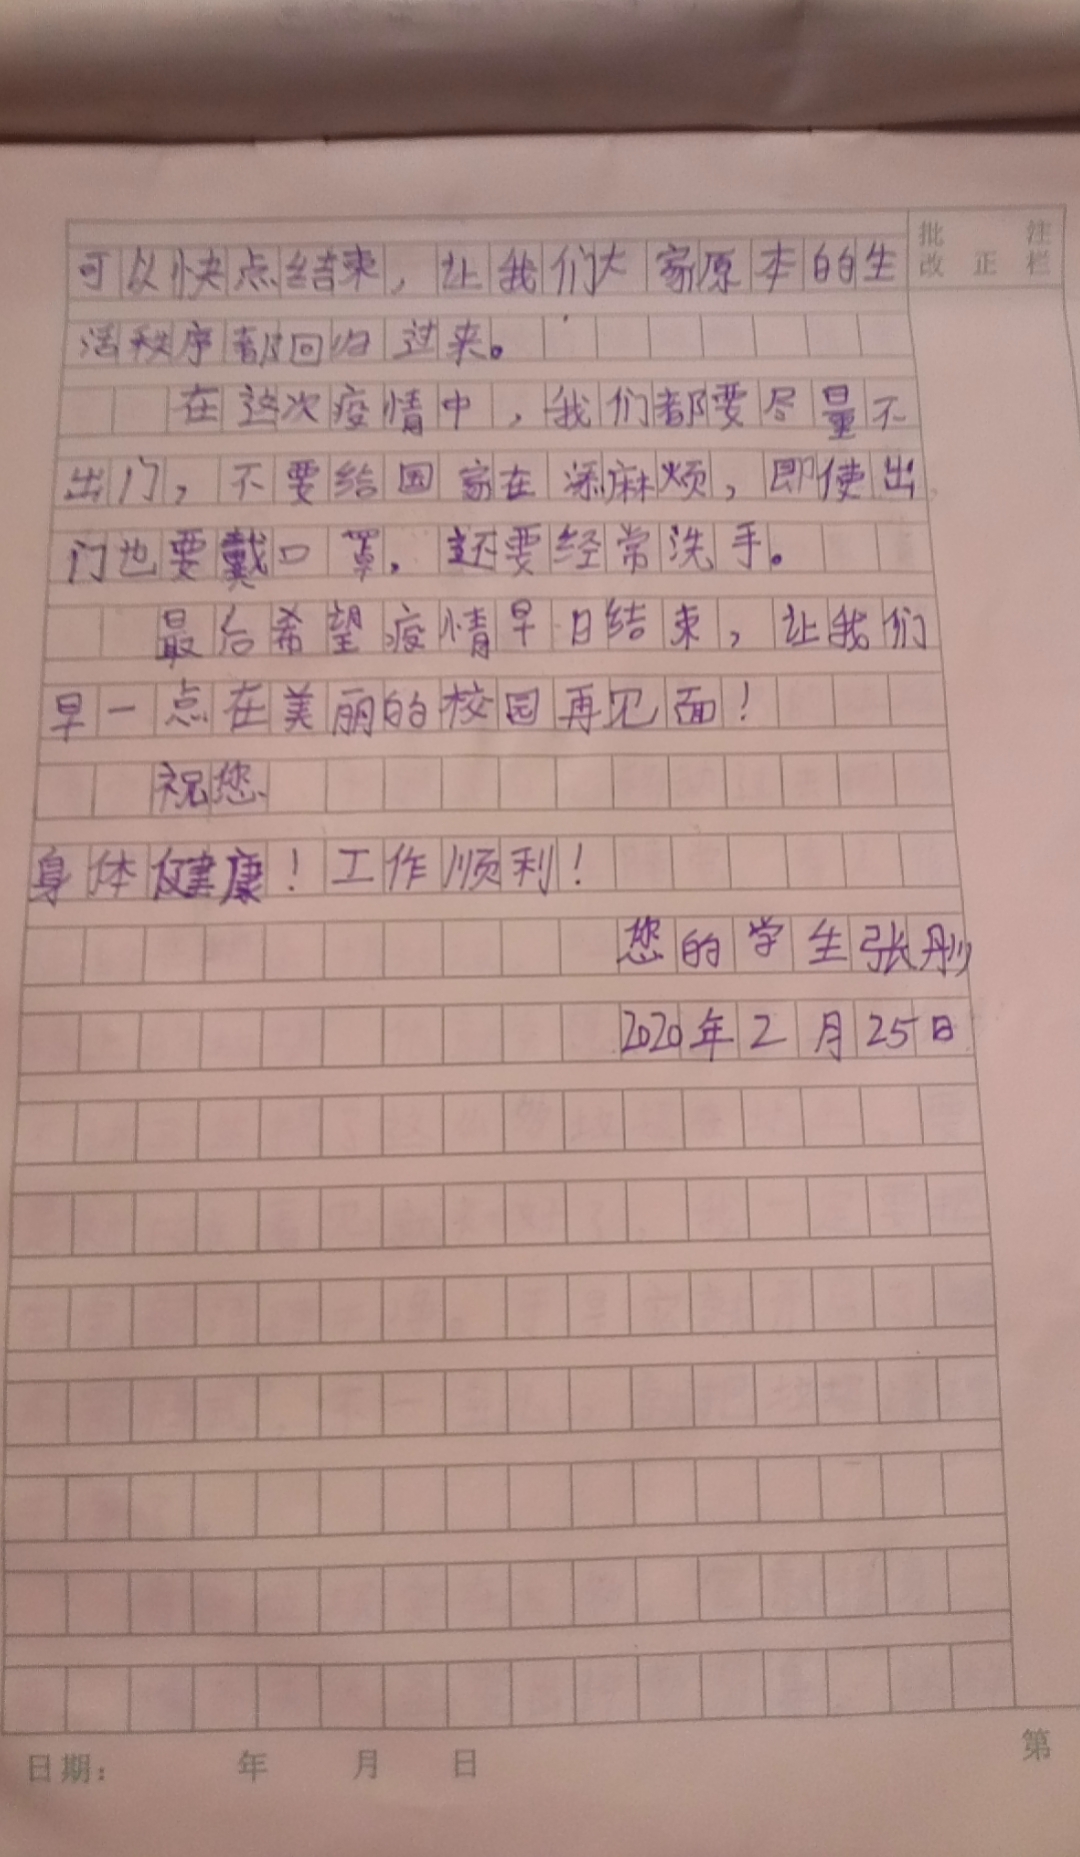 批 注
改 正 栏
可以快点结束，让我们大家原本的生
活秩序都回归过来。
在这次疫情中，我们都要尽量不
出门，不要给国家在添麻烦，即使出
门也要戴口罩，还要经常洗手。
最后希望疫情早日结束，让我们
早一点在美丽的校园再见面！
祝您
身体健康！工作顺利！
您的学生张彤
2020年2月25日
日期： 年 月 日
第